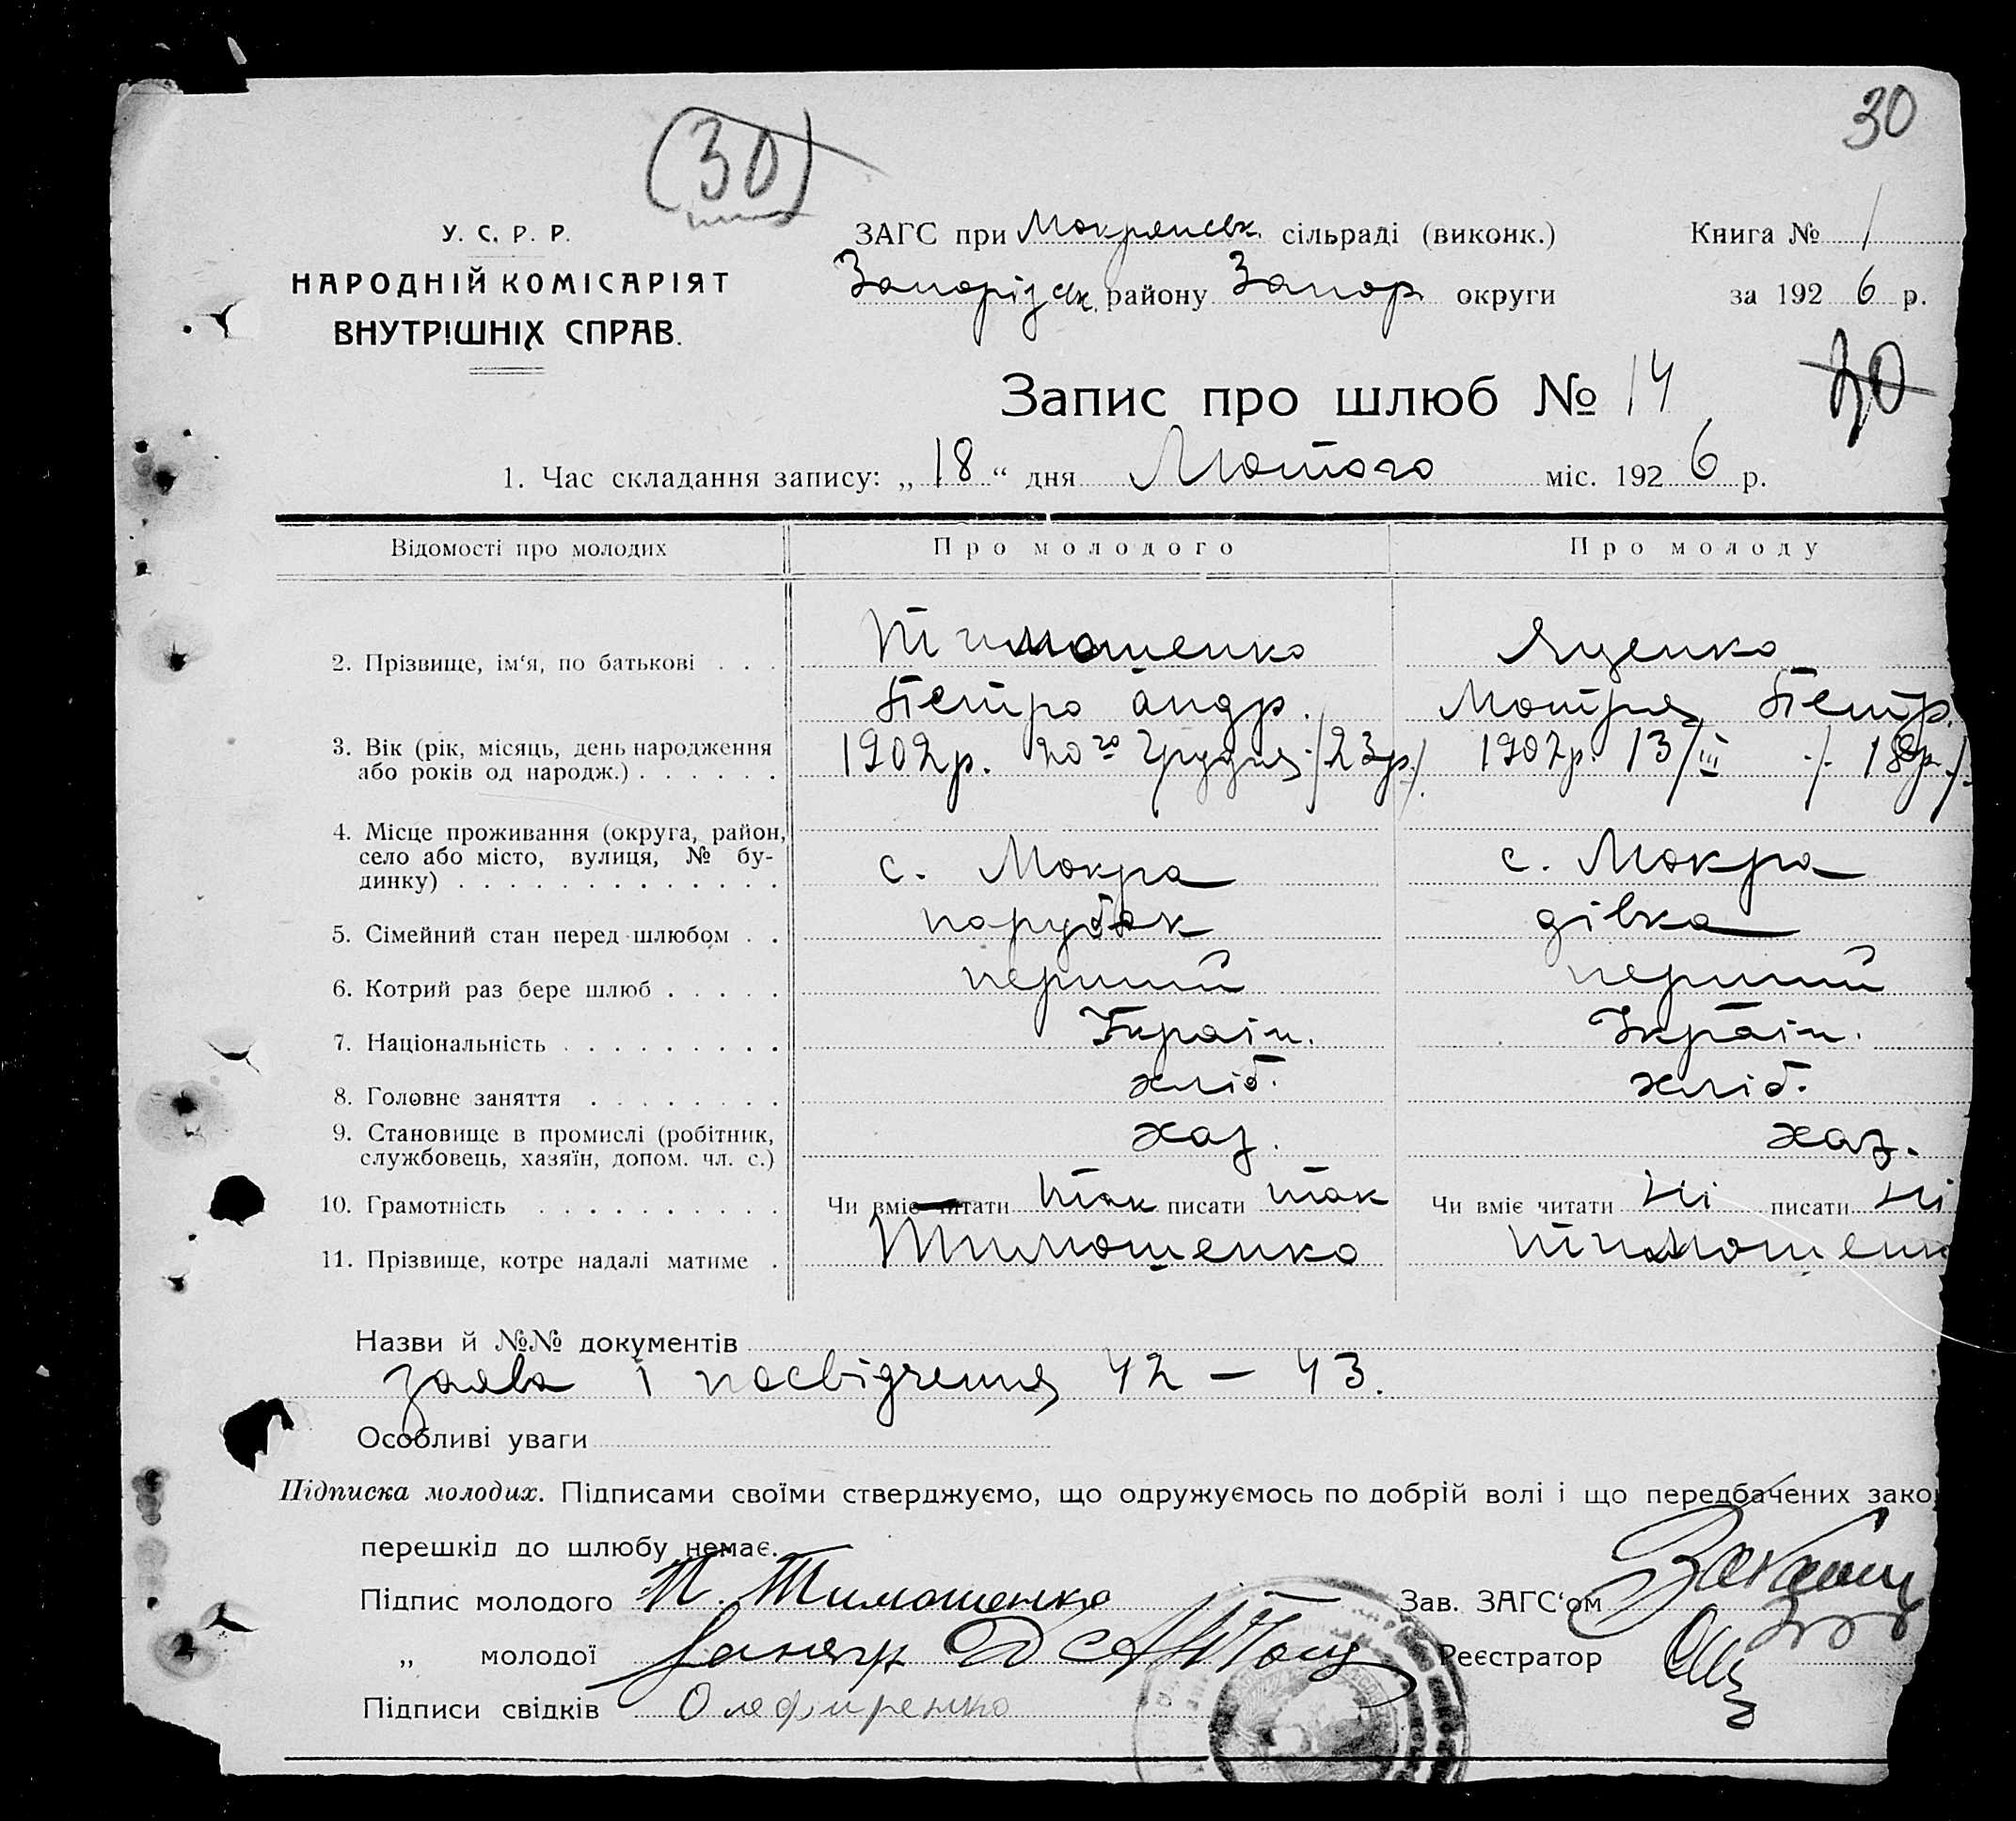 30
(30)
У. С. Р. Р.
НАРОДНІЙ КОМІСАРІЯТ
ВНУТРІШНІХ СПРАВ.
ЗАГС при Мокрянськ. сільраді (виконк.)
Запорізськ. району Запор. округи
Книга № 1
за 1926 р.
Запис про шлюб № 14
30
1. Час складання запису: „18“ дня Лютого міс. 1926 р.
Відомості про молодих Про молодого Про молоду
2. Прізвище, ім‘я, по батькові . . . Тимошенко Яценко
Петро Андр. Мотря Петр.
3. Вік (рік, місяць, день народження 1902р. 20го Грудня /23р./ 1907р. 13/III /18р./
або років од народж.) . . . . . .
4. Місце проживання (округа, район,
село або місто, вулиця, № бу- с. Мокра с. Мокра
динку) . . . . . . . . . . . . .
5. Сімейний стан перед шлюбом . . парубок дівка
6. Котрий раз бере шлюб . . . . . перший перший
7. Національність . . . . . . . . . Україн. Україн.
8. Головне заняття . . . . . . . . хліб. хліб.
9. Становище в промислі (робітник, хаз. хаз.
службовець, хазяїн, допом. чл. с.)
10. Грамотність . . . . . . . . . . Чи вміє читати так писати так Чи вміє читати Ні писати Ні
11. Прізвище, котре надалі матиме . Тимошенко Тимошенк
Назви й №№ документів
заява і посвідчення 42 – 43.
Особливі уваги
Підписка молодих. Підписами своїми стверджуємо, що одружуємось по добрій волі і що передбачених зако
перешкід до шлюбу немає.
Підпис молодого П. Тимошенко Зав. ЗАГС‘ом
„ молодої Реєстратор
Підписи свідків Олефиренко